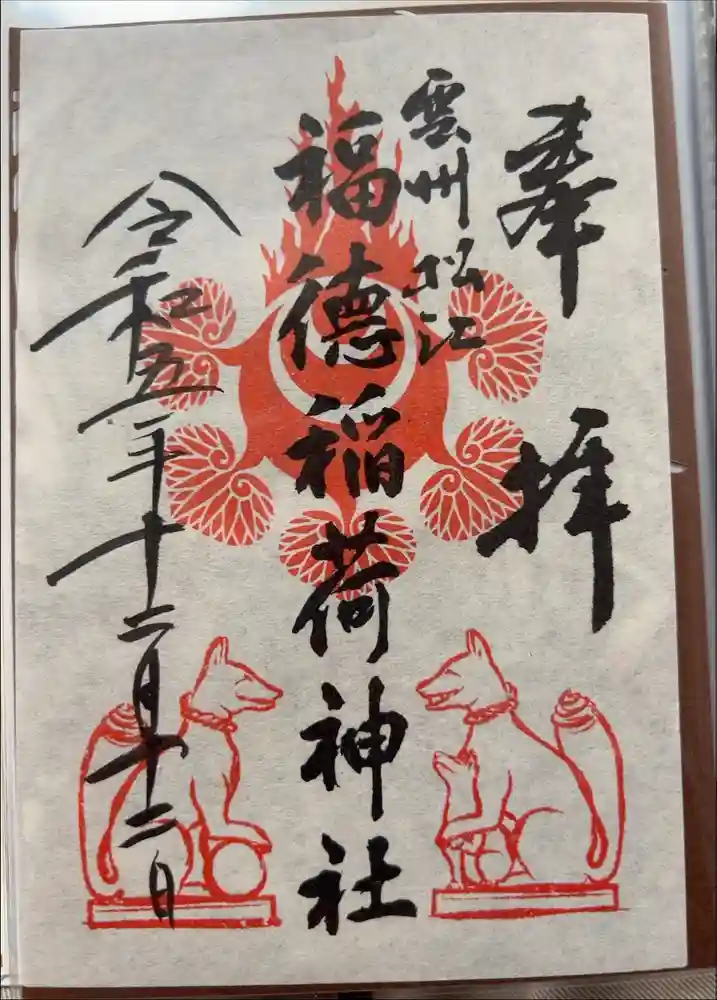 奉拝
雲州松江
福德稲荷神社
令和五年十二月十二日